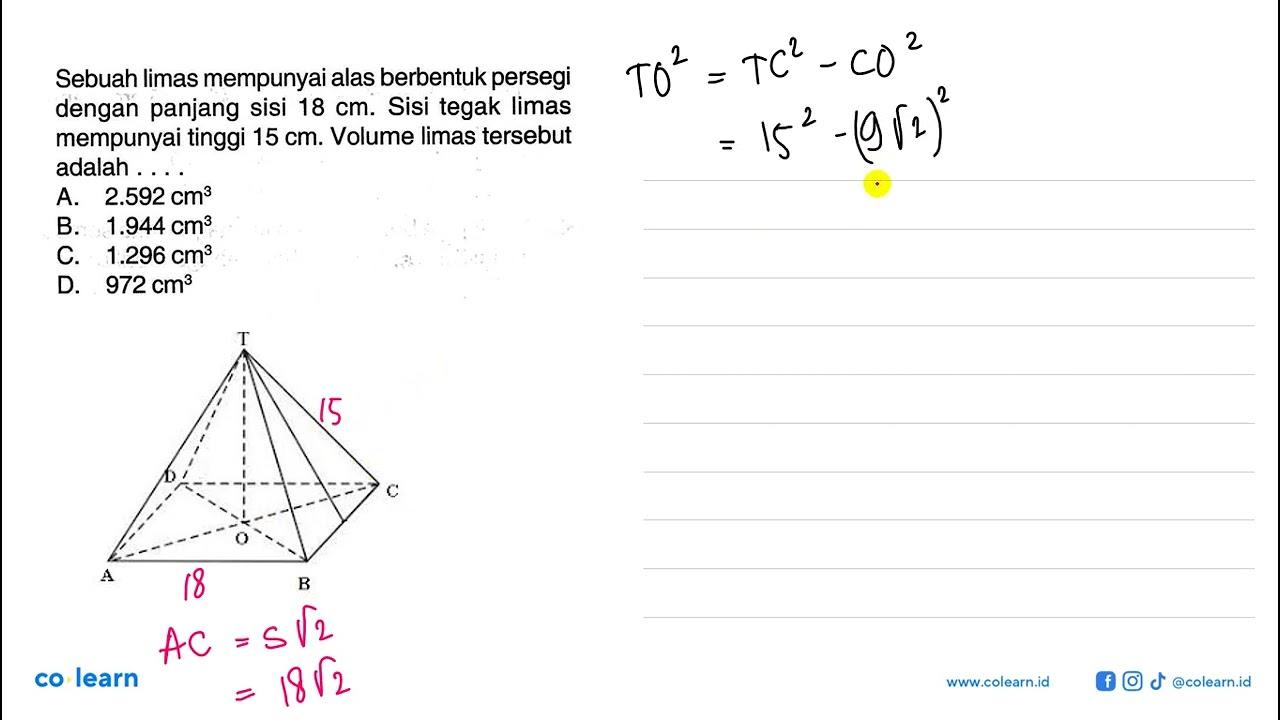 Sebuah limas mempunyai alas berbentuk persegi
dengan panjang sisi 18 cm. Sisi tegak limas
mempunyai tinggi 15 cm. Volume limas tersebut
adalah . . . .
A. 2.592 cm³
B. 1.944 cm³
C. 1.296 cm³
D. 972 cm³
T
15
D
C
O
A
18
B
AC = s√2
= 18√2
TO² = TC² - CO²
= 15² - (9√2)²
co learn
www.colearn.id
@colearn.id